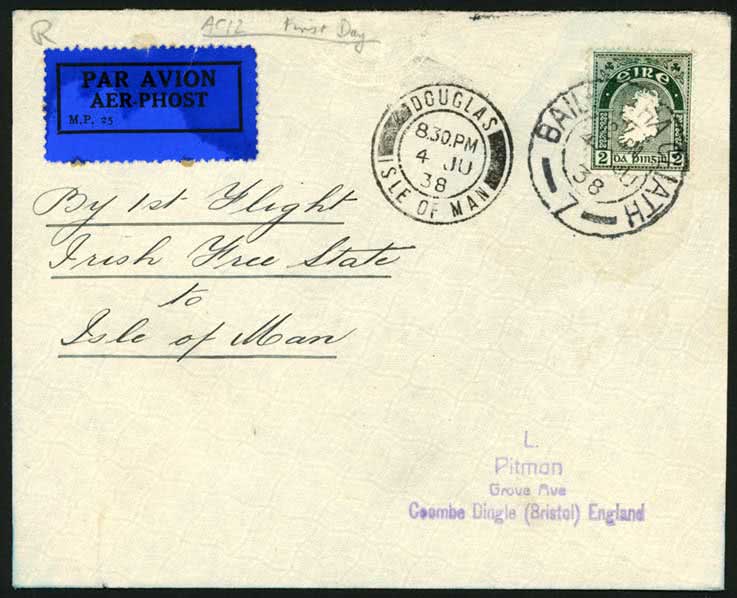 R
AC12 First Day
PAR AVION
AER-PHOST
M.P. 25
DOUGLAS
8.30.PM
4 JU
38
ISLE OF MAN
ÉIRE
2 DÁ PINSIN 2
BAILE ATHA CLIATH
4 JU
38
By 1st Flight
Irish Free State
to
Isle of Man
L.
Pitman
Grove Ave
Coombe Dingle (Bristol) England